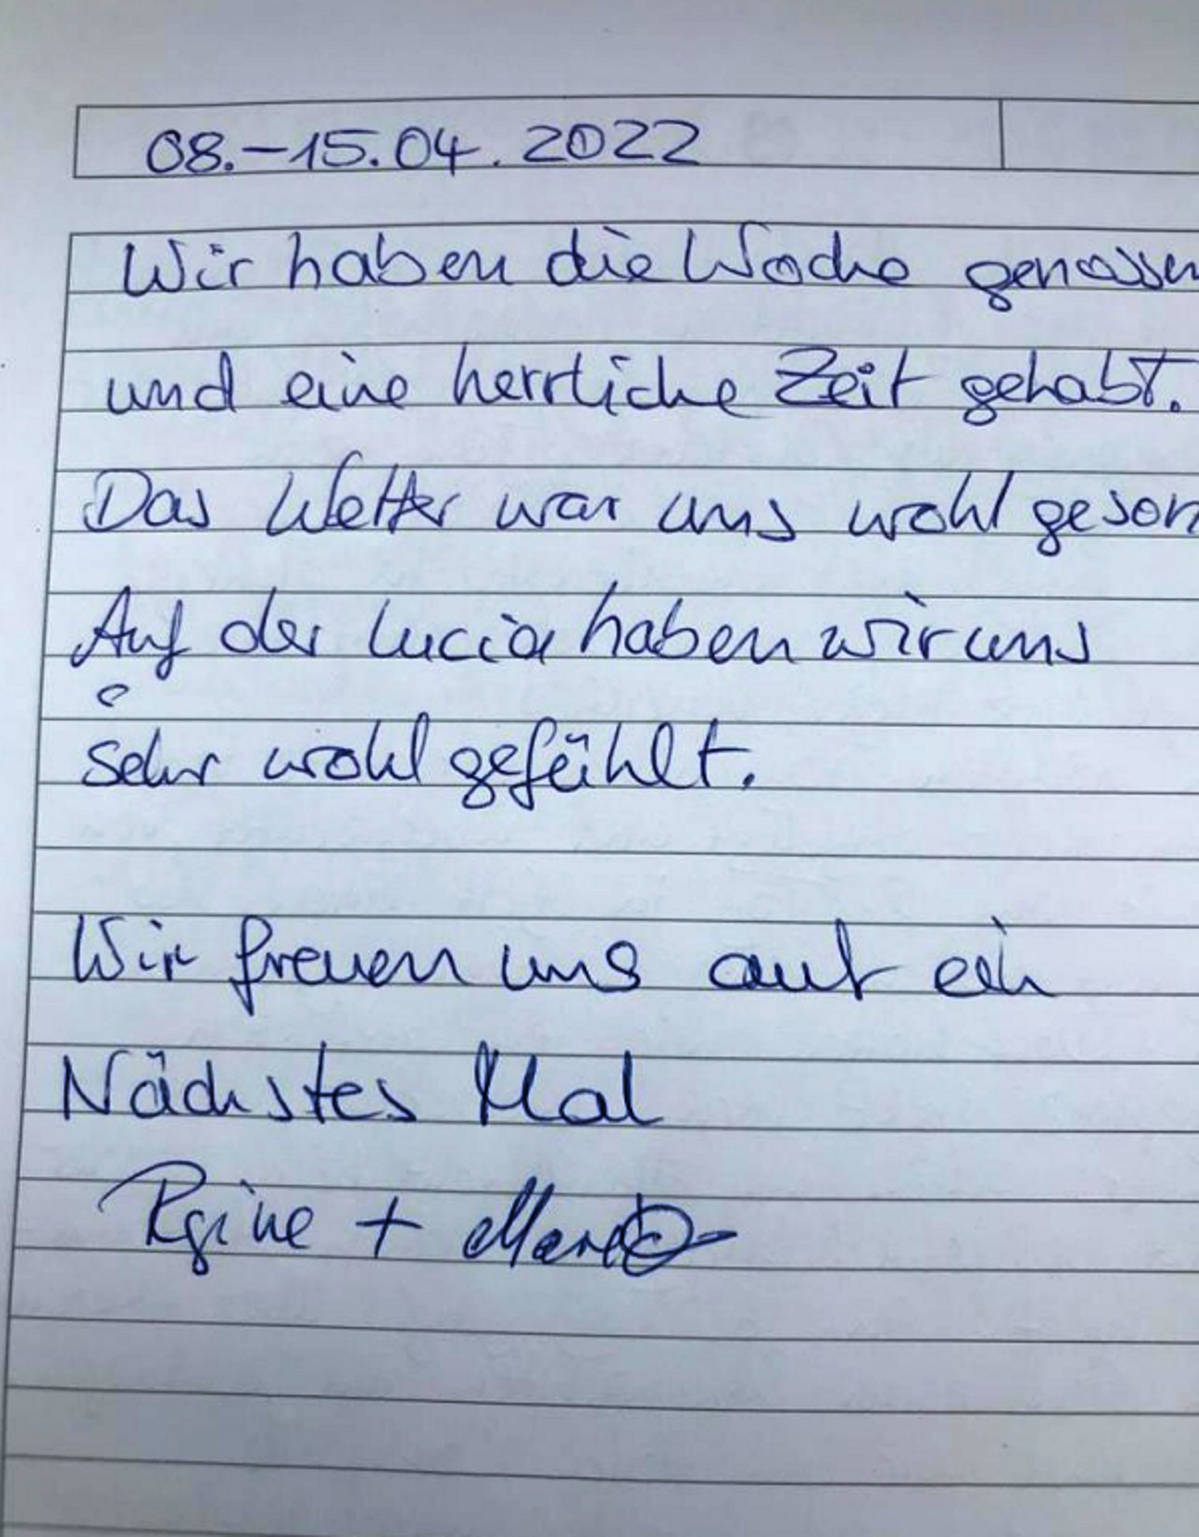 08.-15.04.2022
Wir haben die Woche genossen
und eine herrliche Zeit gehabt.
Das Wetter war uns wohl geson
Auf der Lucia haben wir uns
sehr wohl gefühlt.
Wir freuen uns auf ein
Nächstes Mal
Rgine +